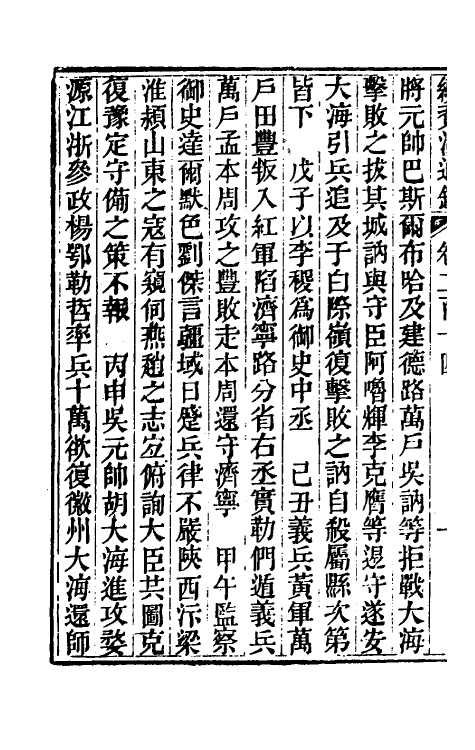 將元帥巴斯爾布哈及建德路萬戶吳訥等拒戰大海
擊敗之拔其城訥與守臣阿嚕輝李克膺等退守遂安
大海引兵追及于白際嶺復擊敗之訥自殺屬縣次第
皆下　戊子以李稷爲御史中丞　己丑義兵黃軍萬
戶田豐叛入紅軍陷濟寧路分省右丞實勒們遁義兵
萬戶孟本周攻之豐敗走本周還守濟寧　甲午監察
御史達爾默色劉傑言疆域日蹙兵律不嚴陝西汴梁
淮潁山東之寇有窺伺燕趙之志宜俯詢大臣共圖克
復豫定守備之策不報　丙申吳元帥胡大海進攻婺
源江浙參政楊鄂勒哲率兵十萬欲復徽州大海還師